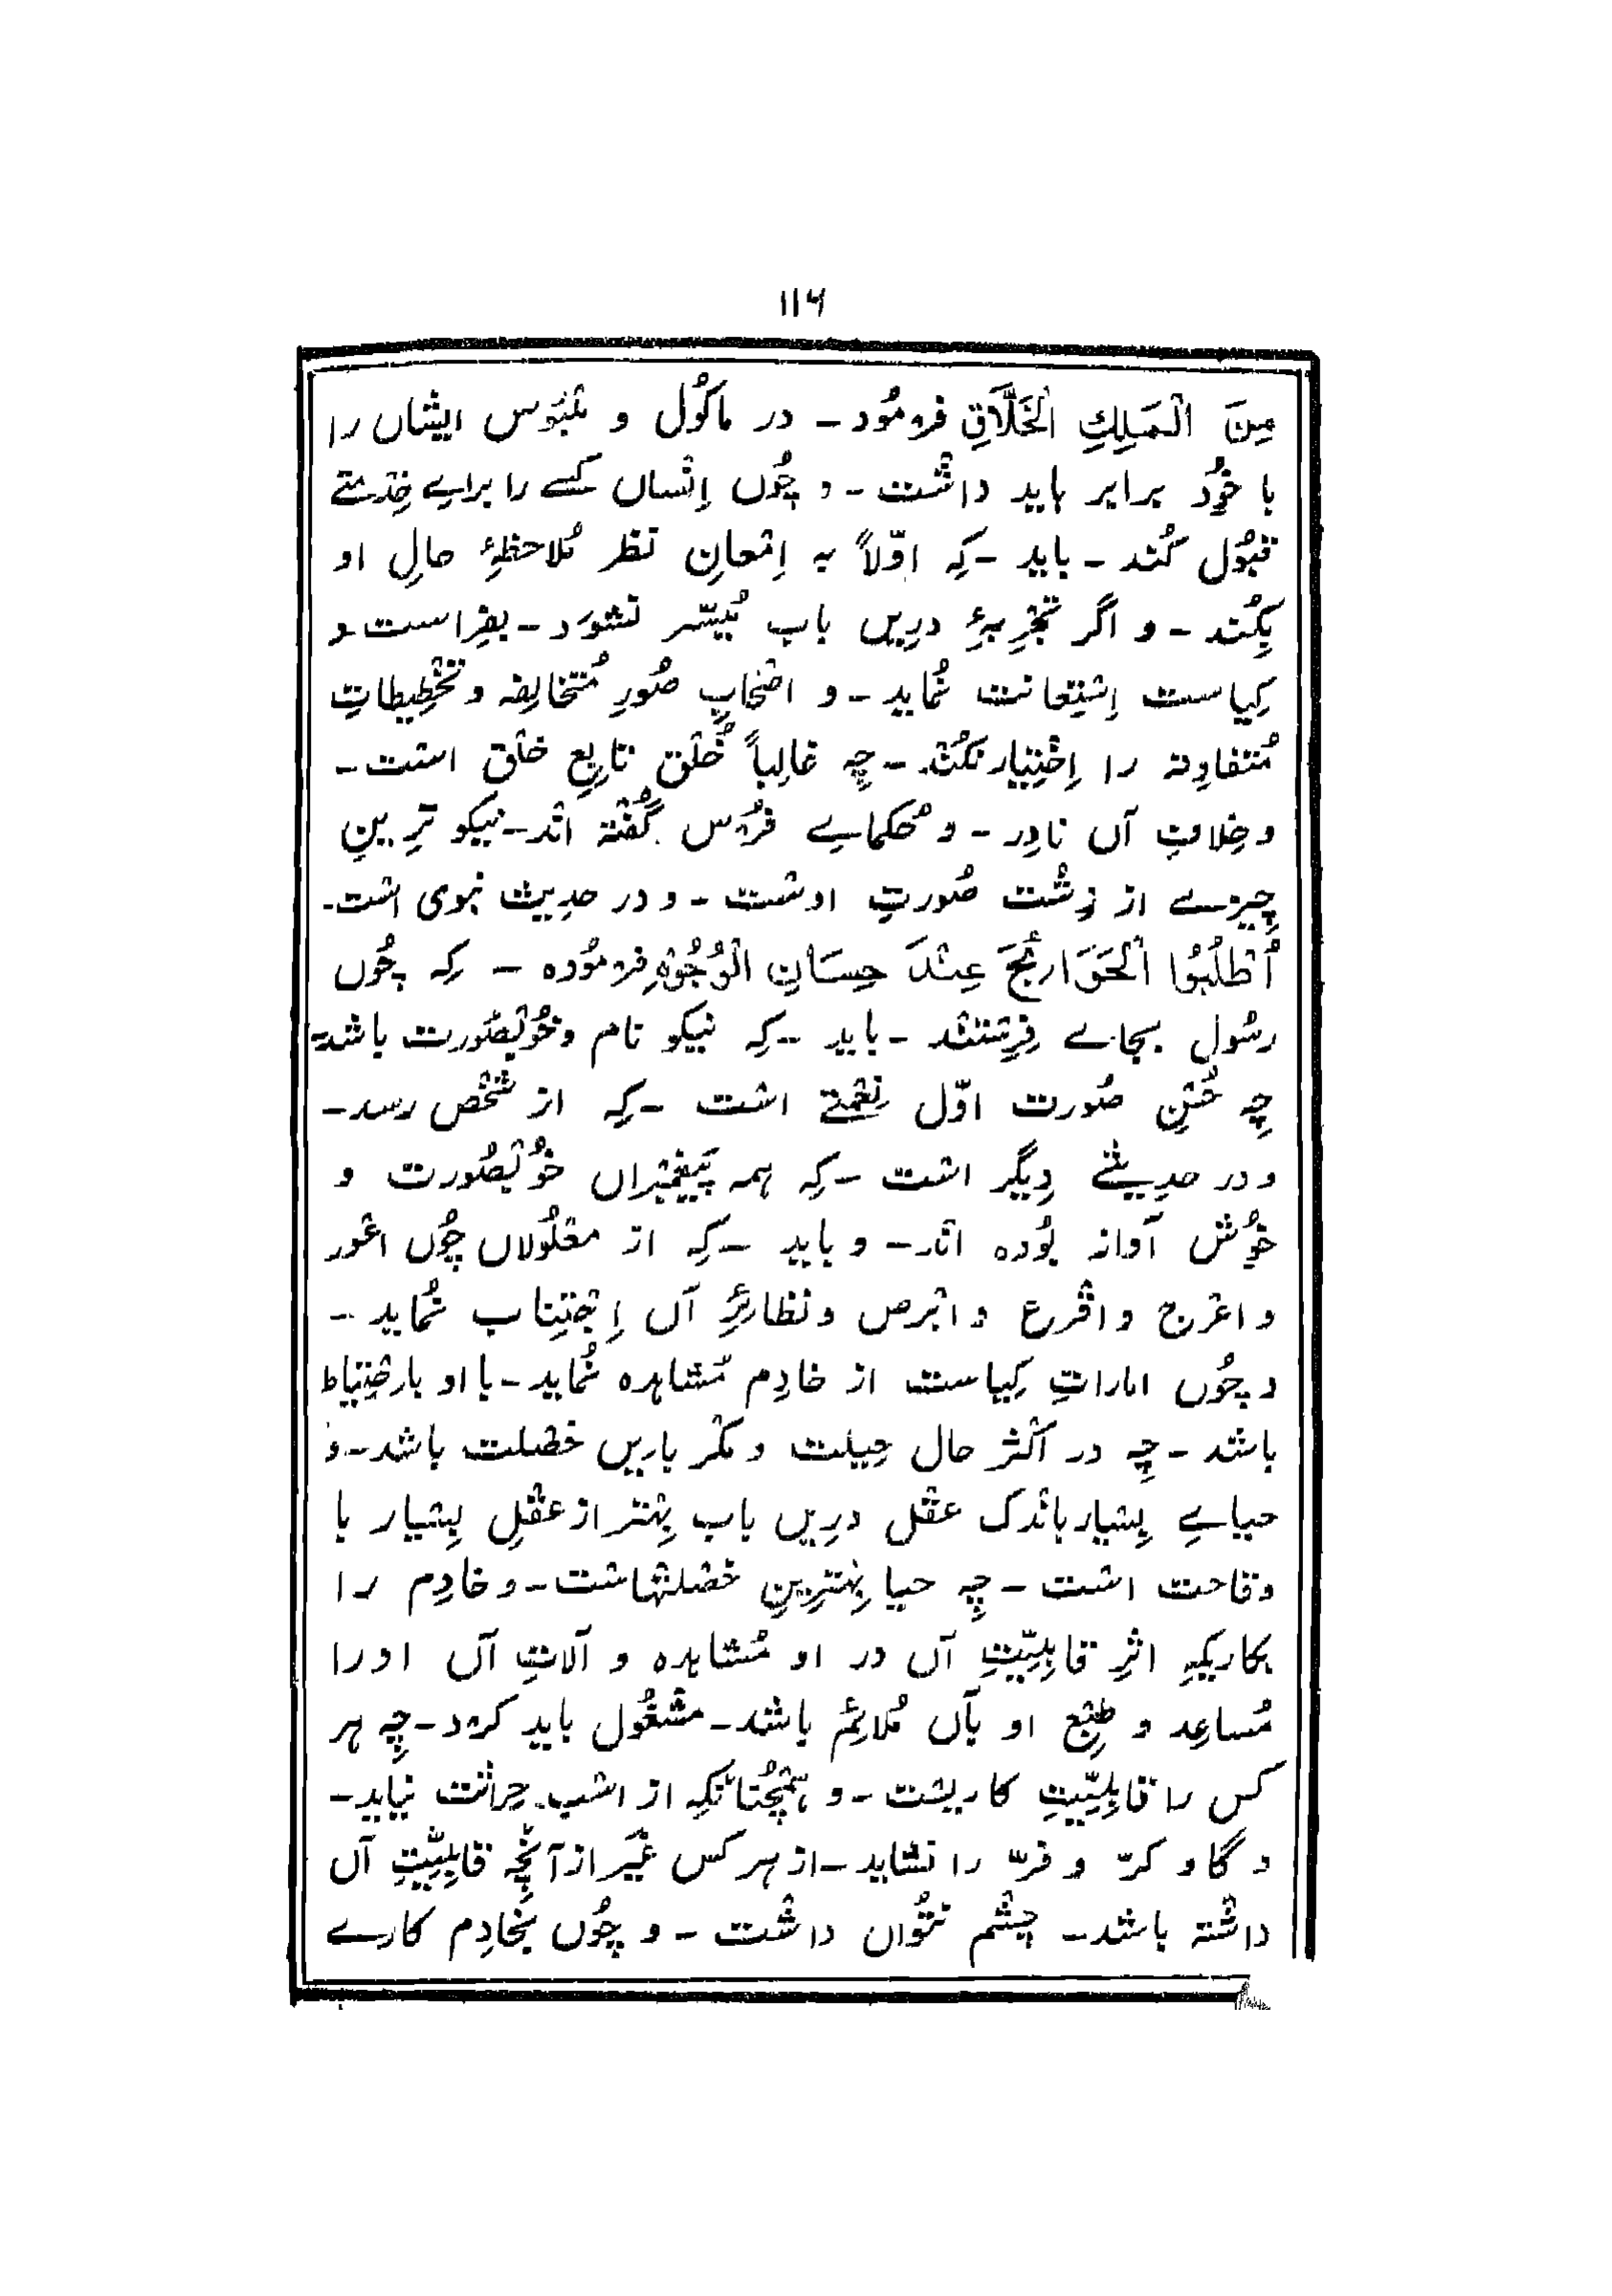 ۱۱۶
مِنَ الْمَلِكِ الْخَلَّاقِ فرمُود - در ماکُول و ملبُوس ایشاں را
با خُود برابر باید داشت - و چُوں اِنساں کسے را براے خِدمتے
قبُول کُند - باید - کِه اوّلاً به اِمعانِ نظر مُلاحظۂ حالِ او
بِکُند - و اگر تجرِبۂ درِیں باب مُیسّر نشوَد - بفِراست و
کِیاست اِستِعانت نُماید - و اصحابِ صُورِ مُتخالِفه و تخطِیطاتِ
مُتفاوِته را اِختِیار نکُند - چِه غالِباً خُلق تابِعِ خلق است -
و خِلافِ آں نادِر - و حُکماے فُرس گُفته اند - نیکو ترِینِ
چِیزے از زِشت صُورتِ اوست - و در حدِیث نبوی است -
اُطْلُبُوا الْحَوَائِجَ عِنْدَ حِسَانِ الْوُجُوْهِ فرمُوده - کِه چُوں
رسُول بجاے فِرِستند - باید - کِه نیکو نام و خُوبصُورت باشد -
چِه حُسنِ صُورت اوّل نِعمتے است - کِه از شخص رسد -
و در حدِیثے دِیگر است - کِه ہمه پَیغمبراں خُوبصُورت و
خُوش آواز بُوده اند - و باید - کِه از معلُولاں چُوں اعور
و اعرج و اقرع و ابرص و نظائرِ آں اِجتِناب نُماید -
و چُوں اماراتِ کِیاست از خادِم مُشاہده نُماید - با او باِحتِیاط
باشد - چِه در اکثر حال حِیلت و مکر باِیں خصلت باشد - و
حیاے بِسیار باندک عقل درِیں باب بِہتر از عقلِ بِسیار با
وقاحت است - چِه حیا بِہترِینِ خصلتہاست - و خادِم را
بکاریکِه اثرِ قابِلِیّتِ آں در او مُشاہده و آلاتِ آں او را
مُساعِد و طبعِ او بآں مُلائم باشد - مشغُول باید کرد - چِه ہر
کس را قابِلِیّتِ کاریست - و ہمچُنانکِه از اسب حِراثت نیاید -
و گاو کرّ و فرّ را نشاید - از ہر کس غیر از آنچِه قابِلِیّتِ آں
داشته باشد - چشم نتُواں داشت - و چُوں بخادِم کارے